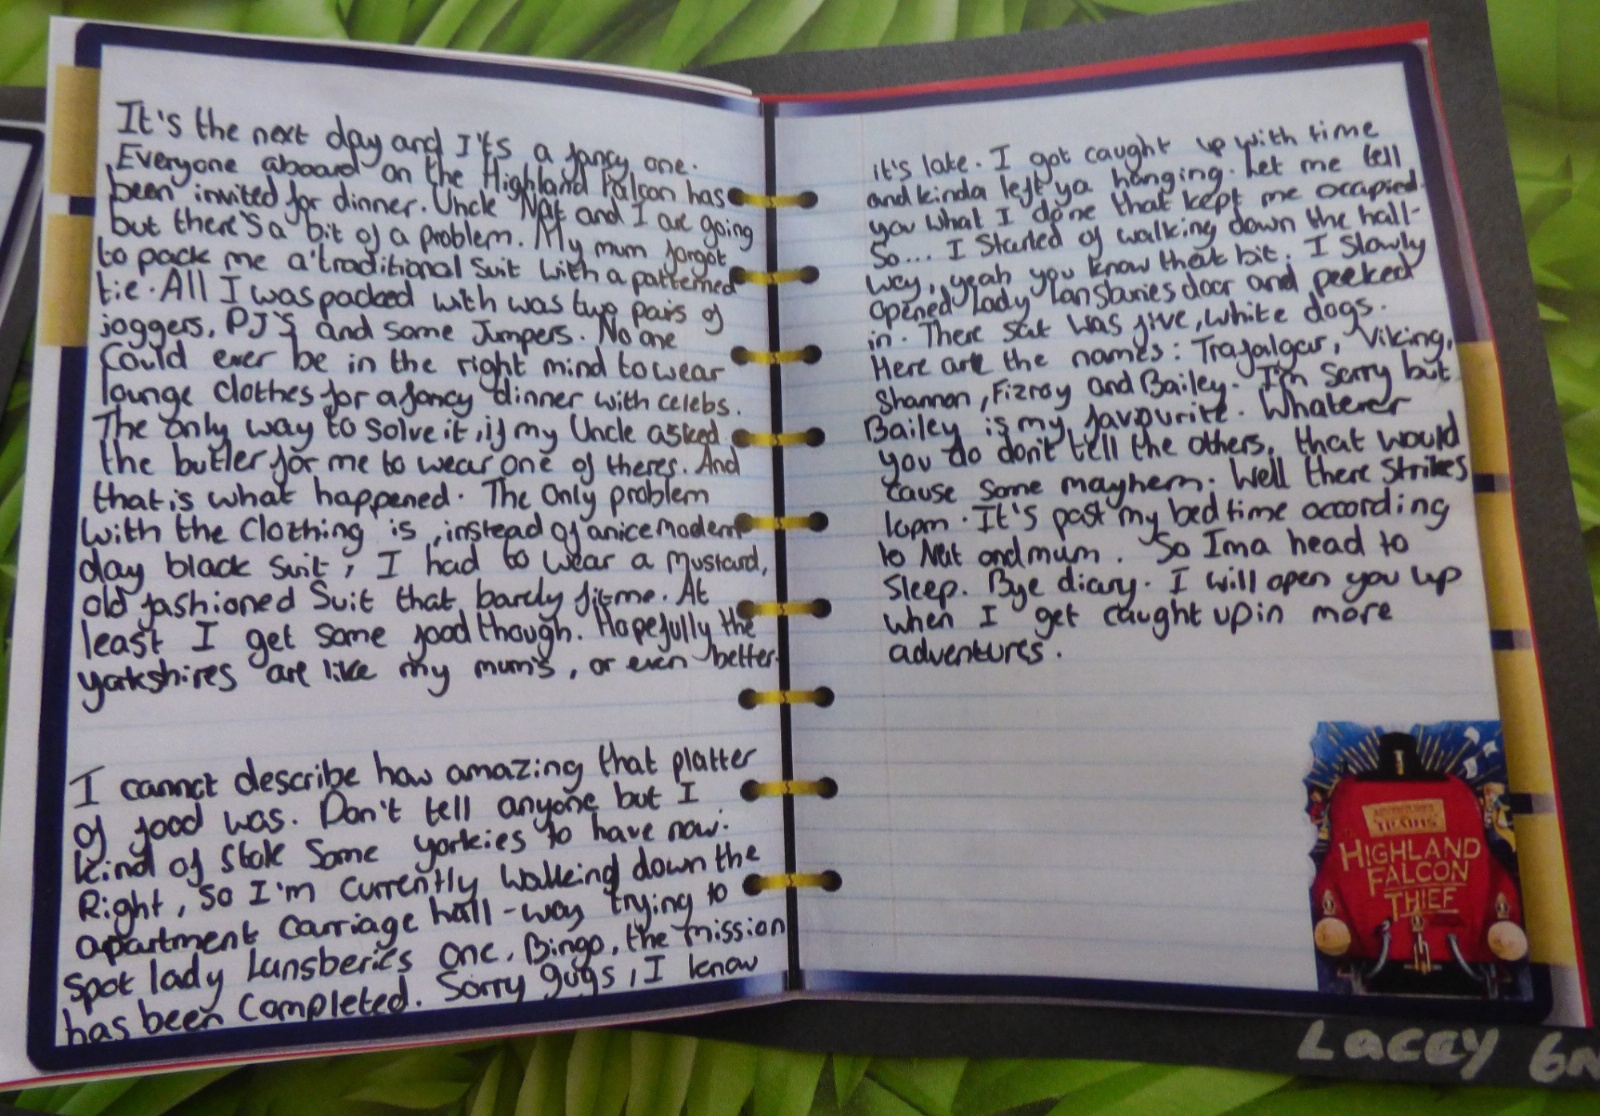 It's the next day and I'ts a fancy one.
Everyone aboard on the Highland Falcon has
been invited for dinner. Uncle Nat and I are going
but there's a bit of a problem. My mum forgot
to pack me a traditional suit with a patterned
tie. All I was packed with was two pairs of
joggers, PJ's and some Jumpers. No one
Could ever be in the right mind to wear
lounge clothes for a fancy dinner with celebs.
The only way to solve it, if my Uncle asked
the butler for me to wear one of theres. And
that is what happened. The only problem
with the clothing is, instead of a nice modern
day black suit, I had to wear a mustard,
old fashioned suit that barely fit me. At
least I get some food though. Hopefully the
yorkshires are like my mum's, or even better.
I cannot describe how amazing that platter
of food was. Don't tell anyone but I
kind of stole some yorkies to have now.
Right, so I'm currently walking down the
apartment carriage hall-way trying to
spot lady Lansberies one. Bingo, the mission
has been completed. Sorry guys, I know
it's late. I got caught up with time
and kinda left ya hanging. Let me tell
you what I done that kept me occapied.
So... I Started of walking down the hall-
way, yeah you know that bit. I slowly
opened lady Lansburies door and peeked
in. There sat was five, white dogs.
Here are the names: Trafalgar, Viking,
Shannon, Fizroy and Bailey. I'm sorry but
Bailey is my favourite. Whatever
you do don't tell the others, that would
cause some mayhem. Well there strikes
10pm. It's past my bed time according
to Nat and mum. So Ima head to
sleep. Bye diary. I will open you up
when I get caught up in more
adventures.
TRAINS
HIGHLAND
FALCON
THIEF
Lacey 6N